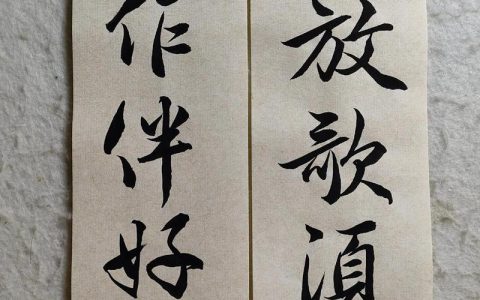 放歌須
作伴好